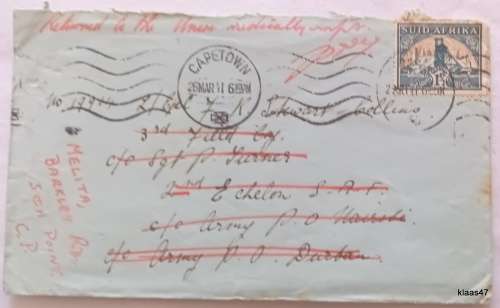 Returned to the Union medically unfit.
SUID-AFRIKA
CAPETOWN
28 MAR 41 6:15 PM
F. K. Stewart Collins
3rd Field Coy.
c/o Sgt P. Turner
2nd Echelon S.A.F.
c/o Army P.O. Nairobi
c/o Army P.O. Durban.
MELITA,
BARKLEY RD.
SEA POINT.
C.P.
klaas47